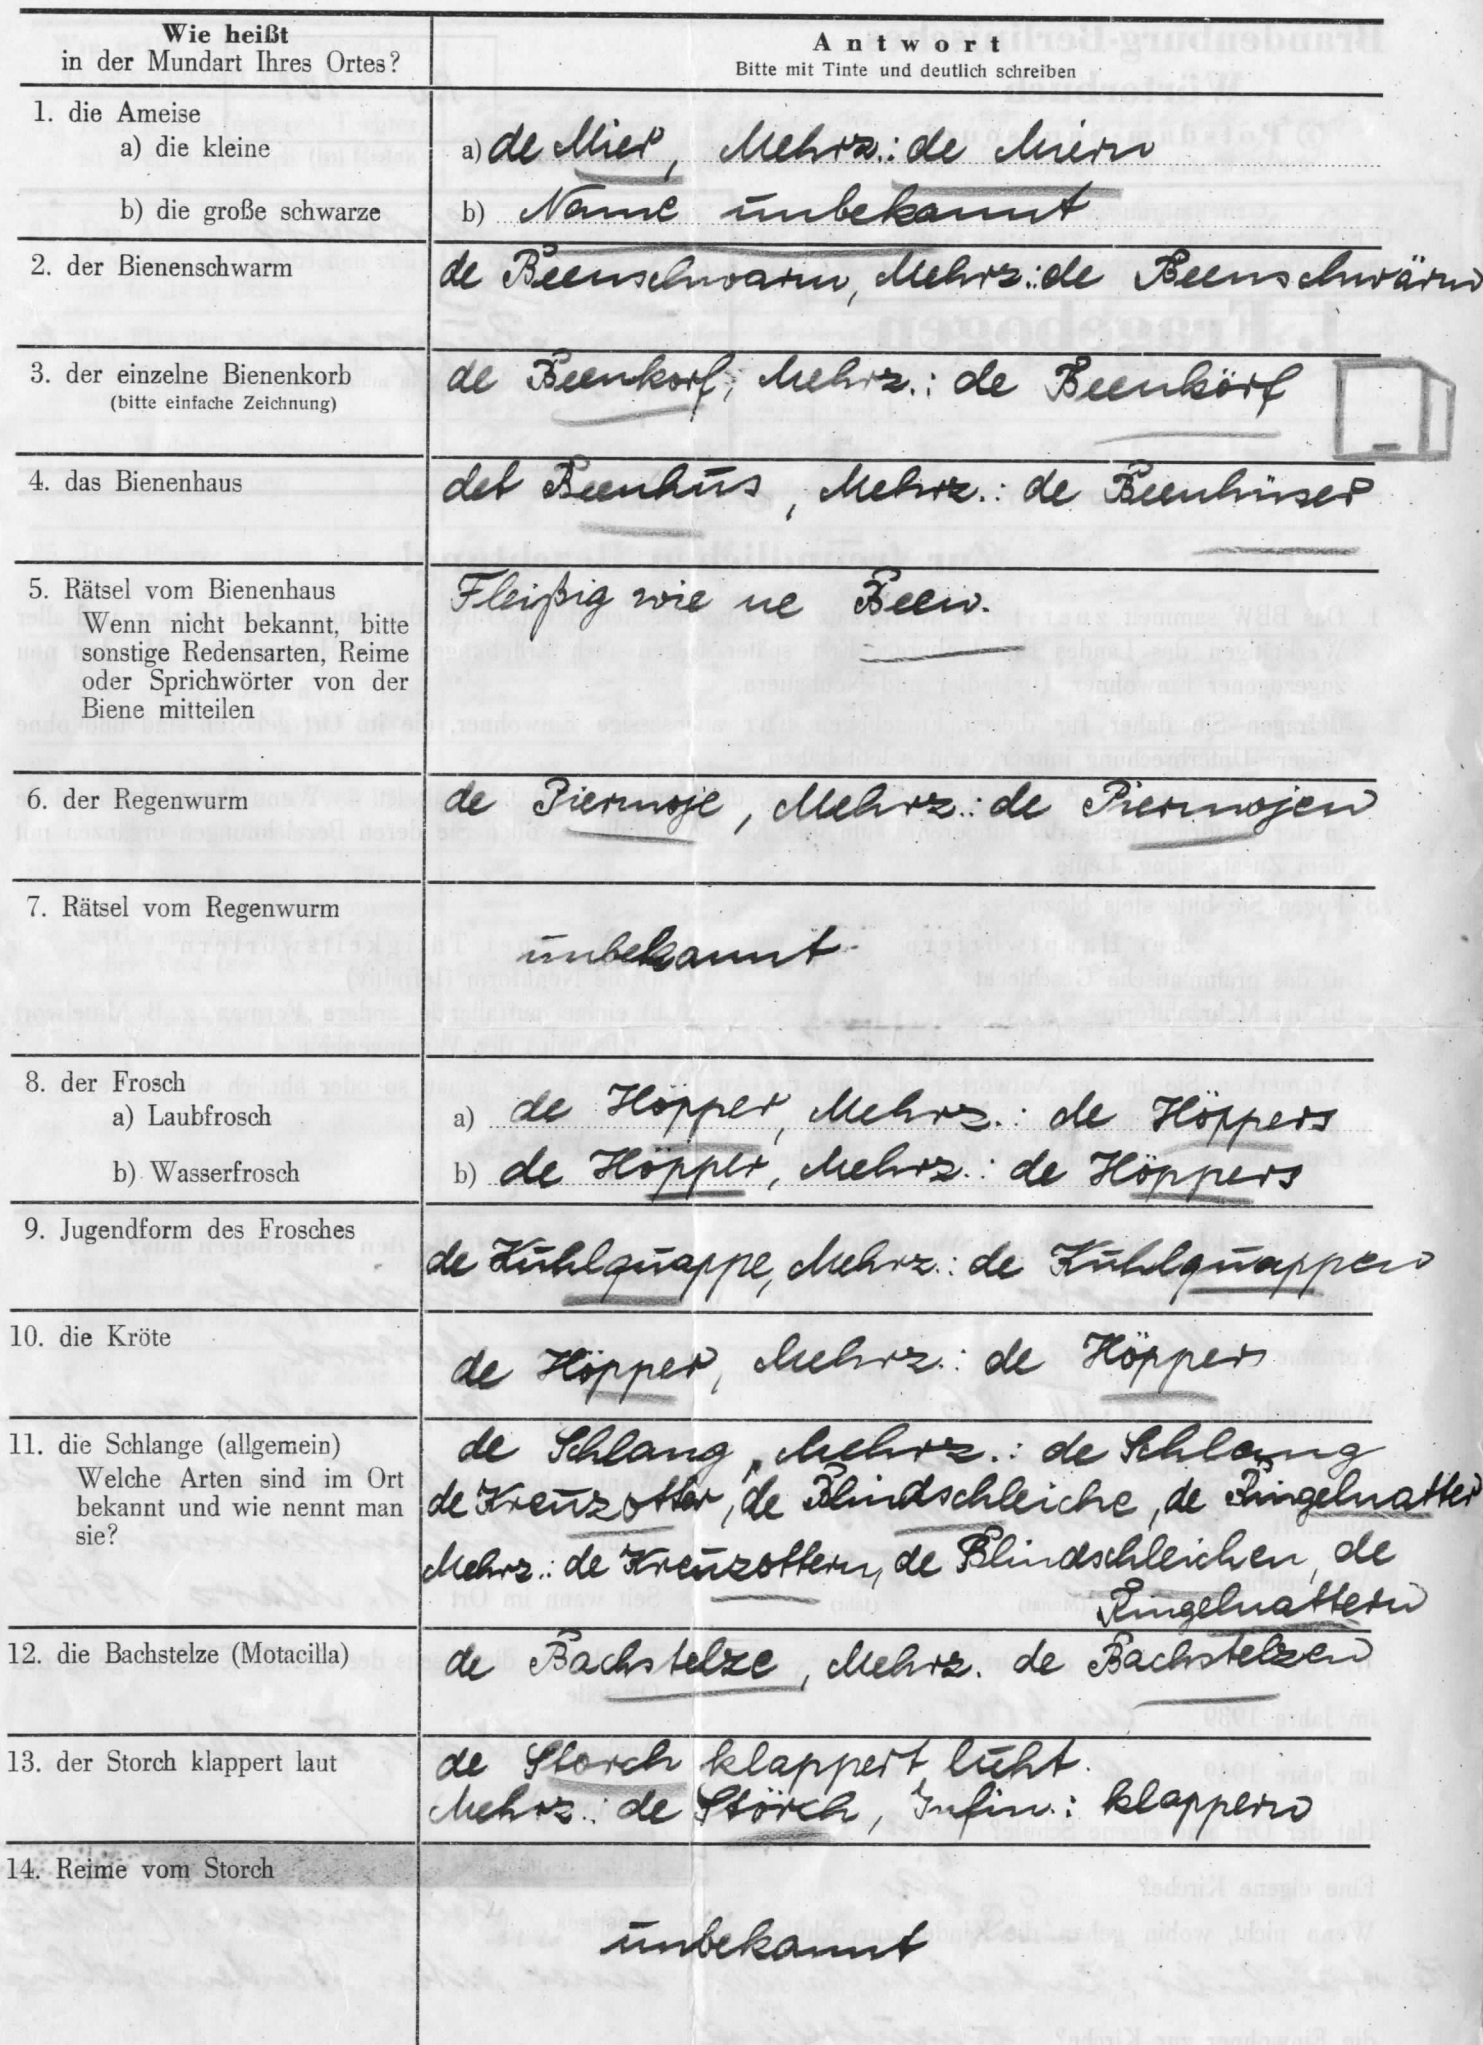 Wie heißt
in der Mundart Ihres Ortes?
Antwort
Bitte mit Tinte und deutlich schreiben
1. die Ameise
a) die kleine
a) de Mier, Mehrz.: de Miern
b) die große schwarze
b) Name unbekannt
2. der Bienenschwarm
de Beenschwarm, Mehrz.: de Beenschwärm
3. der einzelne Bienenkorb
(bitte einfache Zeichnung)
de Beenkorf, Mehrz.: de Beenkörf
4. das Bienenhaus
det Beenhus, Mehrz.: de Beenhüser
5. Rätsel vom Bienenhaus
Wenn nicht bekannt, bitte
sonstige Redensarten, Reime
oder Sprichwörter von der
Biene mitteilen
Fleißig wie ne Been.
6. der Regenwurm
de Piermoje, Mehrz.: de Piermojen
7. Rätsel vom Regenwurm
unbekannt
8. der Frosch
a) Laubfrosch
a) de Höpper, Mehrz.: de Höppers
b) Wasserfrosch
b) de Höpper, Mehrz.: de Höppers
9. Jugendform des Frosches
de Kuhlquappe, Mehrz.: de Kuhlquappen
10. die Kröte
de Höpper, Mehrz.: de Höppers
11. die Schlange (allgemein)
Welche Arten sind im Ort
bekannt und wie nennt man
sie?
de Schlang, Mehrz.: de Schlang
de Kreuzotter, de Blindschleiche, de Ringelnatter
Mehrz.: de Kreuzottern, de Blindschleichen, de
Ringelnattern
12. die Bachstelze (Motacilla)
de Bachstelze, Mehrz. de Bachstelzen
13. der Storch klappert laut
de Storch klappert luht.
Mehrz.: de Störch, Infin.: klappern
14. Reime vom Storch
unbekannt